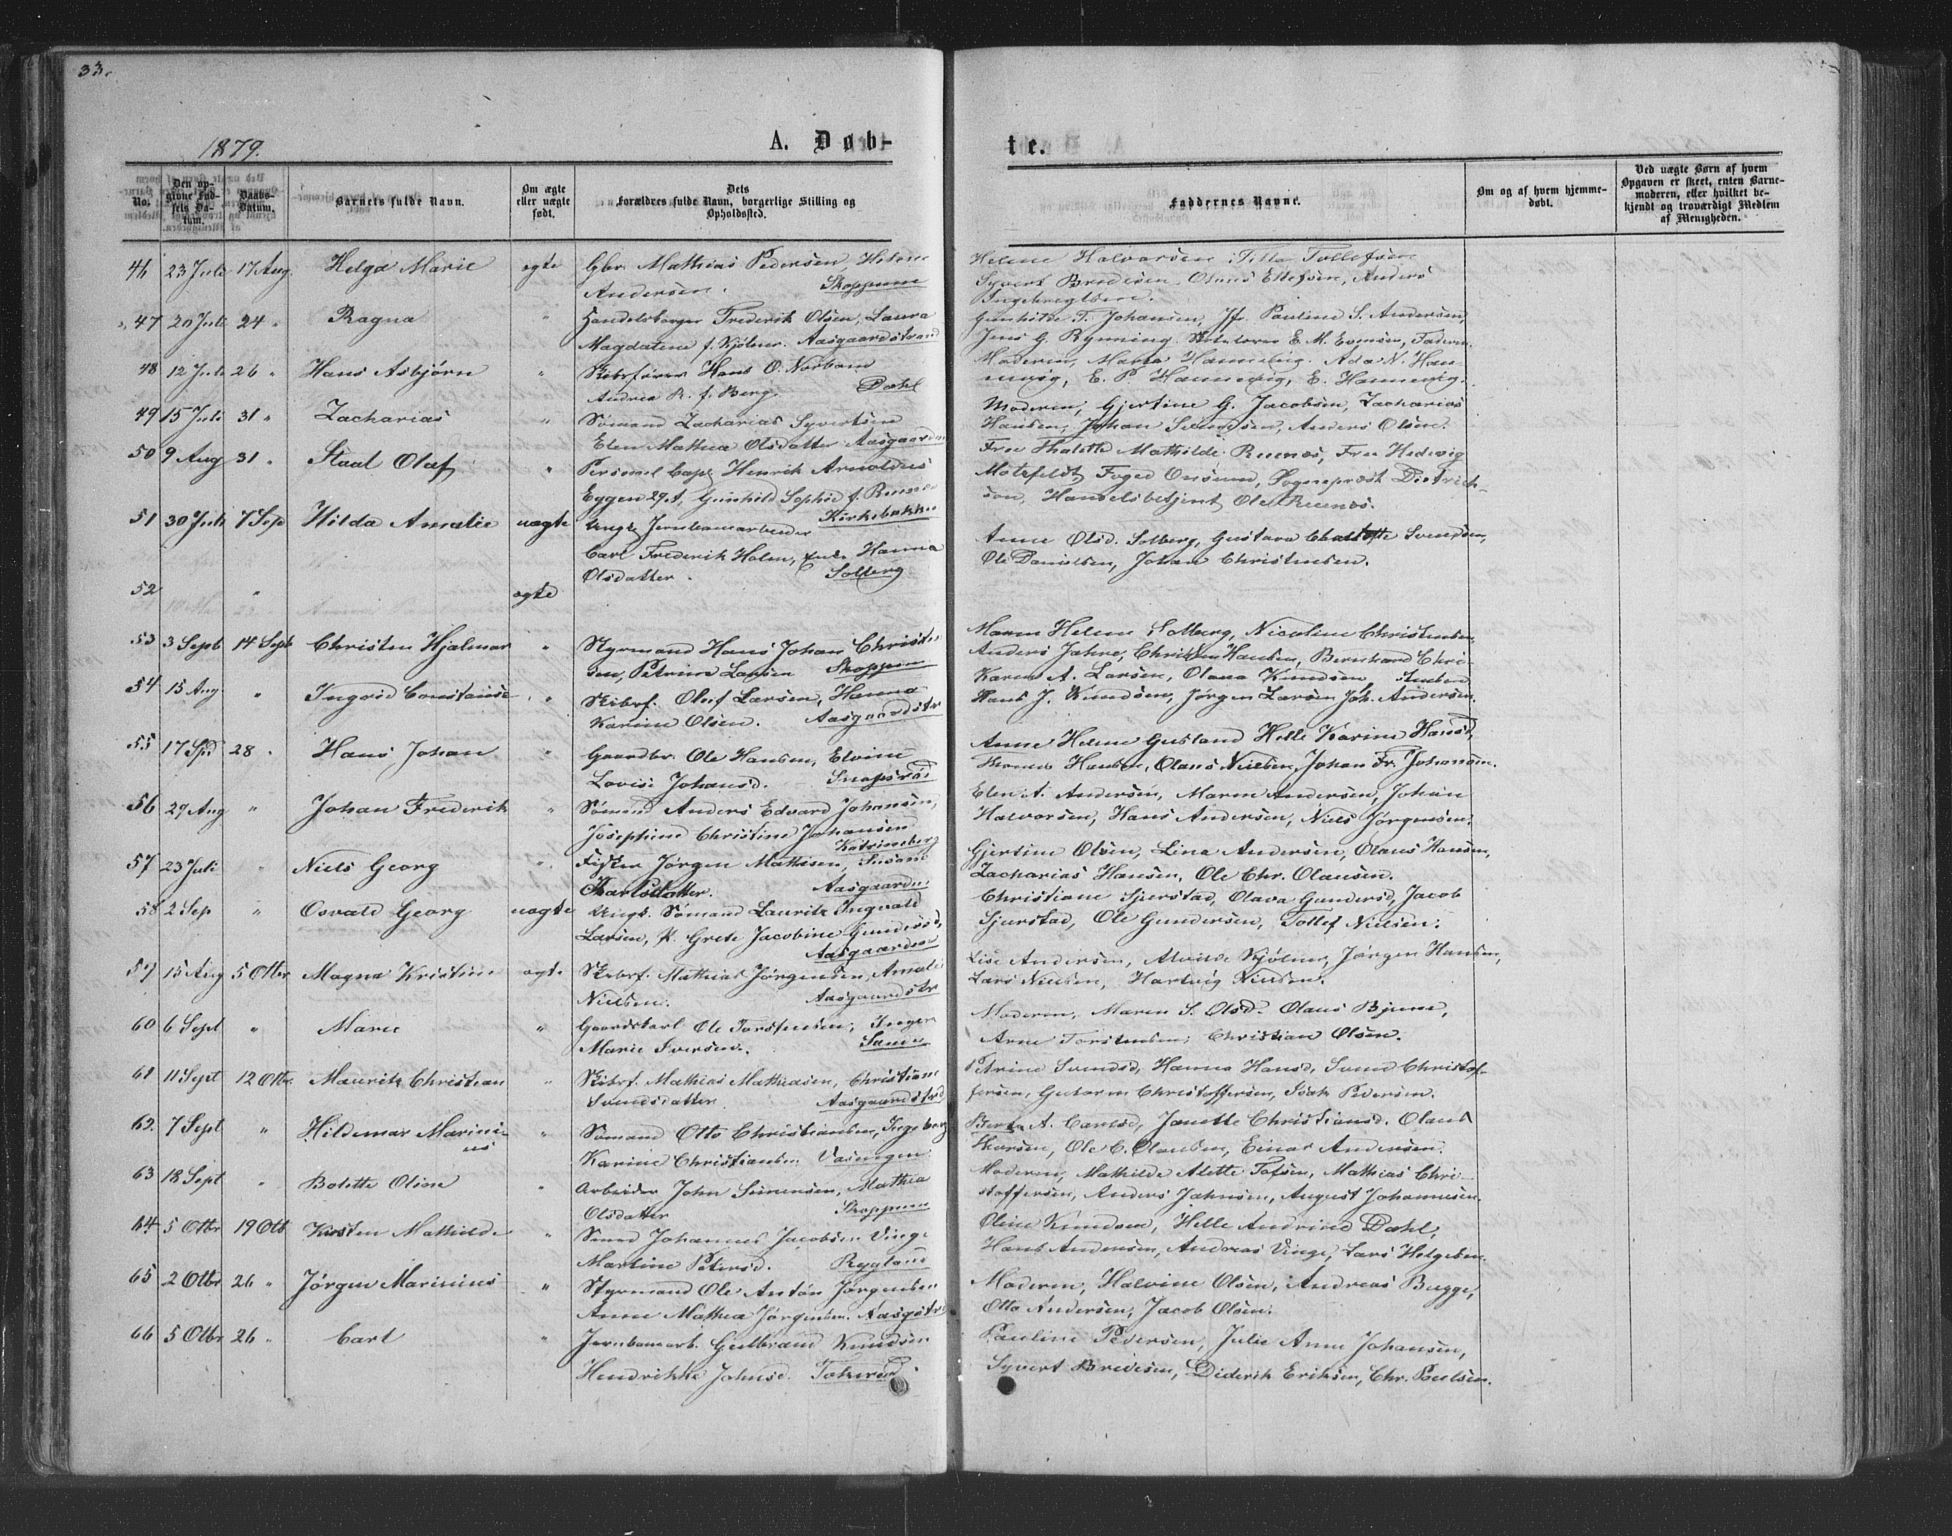 33.
1879.
A. Døb-
te.
No.
Den opgivne Fødsels Datum.
Daabs-Datum.
Barnets fulde Navn.
Om ægte eller uægte født.
Dets Forældres fulde Navn, borgerlige Stilling og Opholdssted.
Faddernes Navne.
Om og af hvem hjemmedøbt.
Ved uægte Børn af hvem Opgaven er skeet, enten Barnemoderen, eller hvilket bekjendt og troværdigt Medlem af Menigheden.
46 23 Juli 17 Aug. Helga Marie ægte Gbr. Mathias Pedersen, Helene
Andersen. Skoppum
Helene Halvorsen
Ingebregtsen.
47 20 Juli 24 " Ragna " Handelsborger Frederik Olsen, Laura
Magdalene f. Kjölner. Aasgaardstrand
Gunhilde T. Johansen, Jfr. Pauline S. Andersen,
Jens G. Rynning
48 12 Juli 26 " Hans Asbjörn " Skibsfører Hans O. Norbom
Andrea R. f. Berg. Dahl
Moderen, Maria Hannevig. Ada N. Han-
nevig, E. P. Hannevig, E. Hannevig.
49 15 Juli 31 " Zacharias " Sömand Zacharias Syvertsen
Elen Mathea Olsdatter Aasgaarden
Moderen, Gjertine G. Jacobsen, Zacharias
Hansen, Johan Svendsen, Anders Olsen.
50 9 Aug 31 " Staal Olaf " Personel Capl Henrik Arnoldus
Eggen 29 A, Gunhild Sophie f.
Kirkebakken
Fru Thalette Mathilde Fru Hedevig
Motzfeldt, Foged Onsum, Sogneprest Dietrich-
son, Handelsbetjent Ole
51 30 Juli 7 Sep Hilda Amalie uægte Ungk. Jernbanearbeider
Carl Frederik Holm, Enke Hanna
Olsdatter. Solberg
Anne Olsd. Solberg, Gustava Charlotte Svendsen,
Ole Danielsen, Johan Christensen.
52 " ægte
53 3 Sept 14 Sept Christen Hjalmar " Styrmand Hans Johan Christen-
sen, Petrine Larsen Skoppum
Maren Helene Solberg, Nicoline Christensen
Anders Jahre, Christen Hansen, Bernhard Chri-
stensen
54 15 Aug. " Ingvold Constanse " Skibsf. Oluf Larsen, Hanna
Karine Olsen. Aasgaardstr
Karen A. Larsen, Olava Knudsen
Hans J. Knudsen, Jørgen Larsen Joh. Andersen.
55 17 Spt 28 " Hans Johan " Gaardbr. Ole Hansen, Elvine
Lovise Johansd. Snapsröd
Anne Helene Gusland Helle Karine Hansd,
Thomas Hansen, Olaus Nielsen, Johan Fr. Johansen.
56 29 Aug " Johan Frederik " Sömand Anders Edvard Johansen,
Josephine Christine Johansen
Katrineberg
Elen A. Andersen, Maren Andersen, Johan
Halvorsen, Hans Andersen, Niels Jørgensen.
57 23 Juli " Niels Georg " Fisker Jørgen Mathisen, Susanne
Karlsdatter. Aasgaarden
Gjertine Olsen, Lina Andersen, Olaus Hansen,
Zacharias Hansen, Ole Chr. Olausen.
58 2 Sep " Osvald Georg uægte Ungk. Sömand Lauritz Ingvald
Larsen, P. Grete Jacobine Gundersd,
Aasgaarden
Christiane Sjerstad, Olava Gundersd, Jacob
Sjurstad, Ole Gundersen, Tollef Nielsen.
59 15 Aug 5 Otbr Magna Kristine ægte Skibsf. Mathias Jørgensen, Amalie
Nielsen. Aasgaardstr
Lise Andersen, Alvilde Kjölner, Jørgen Hansen,
Lars Nielsen, Hartvig Nielsen.
60 6 Sept " Marie " Gaardskarl Ole Torstensen, Inger
Marie Iversen.
Moderen, Maren S. Olsd. Olaus Bjune,
Arne Torstensen, Christian Olsen.
61 11 Sept 12 Otbr Mauritz Christian " Skibsf. Mathias Mathiasen, Christiane
Svendsdatter Aasgaardstrd
Petrine Svendsd, Hanna Hansd, Svend Christof-
fersen, Gutorm Christoffersen, Isak Pedersen.
62. 7 Sept " Hildemar Marini-
us " Sömand Otto Christiansen, Ingeborg
Karine Christiansen Vasungen
Berte A. Carlsd, Janette Christiansd. Olaus
Thorsen, Ole C. Olausen, Einar Andersen.
63 18 Sept " Bolette Oline " Arbeider John Simensen, Mathea
Olsdatter Skoppum
Moderen, Mathilde Alette Tofsen, Mathias Chri-
stoffersen, Anders Jahnsen, August Johannesen.
64 5 Otbr 19 Otb Kirsten Mathilde " Smed Johannes Jacobsen Vinge
Martine Petersd. Rygland
Oline Knudsen, Helle Andrine Dahl,
Hans Andersen, Andreas Vinge, Lars Helgesen.
65 2 Otbr 26 " Jørgen Marinius " Styrmand Ole Anton Jørgensen
Anne Mathea Jørgensen. Aasgstr
Moderen, Halvine Olsen, Andreas Bugge,
Otto Andersen, Jacob Olsen.
66 5 Otbr 26 " Carl " Jernbanearb. Gulbrand Knudsen
Hendrikke Johnsd. Tokerød
Pauline Pedersen, Julie Anne Johansen,
Syvert Bredesen, Diderik Eriksen, Chr. Poulsen.